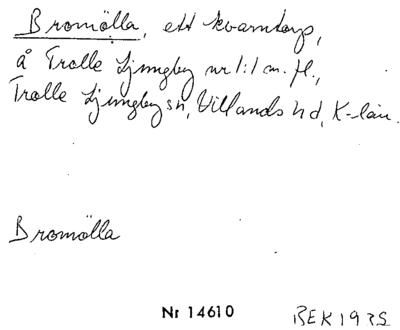 Bromölla, ett kvarntorp,
å Trolle Ljungby nr 1:1 m. fl.,
Trolle Ljungby sn, Villands hd, K-län.
Bromölla
Nr 14610 BEK 1935